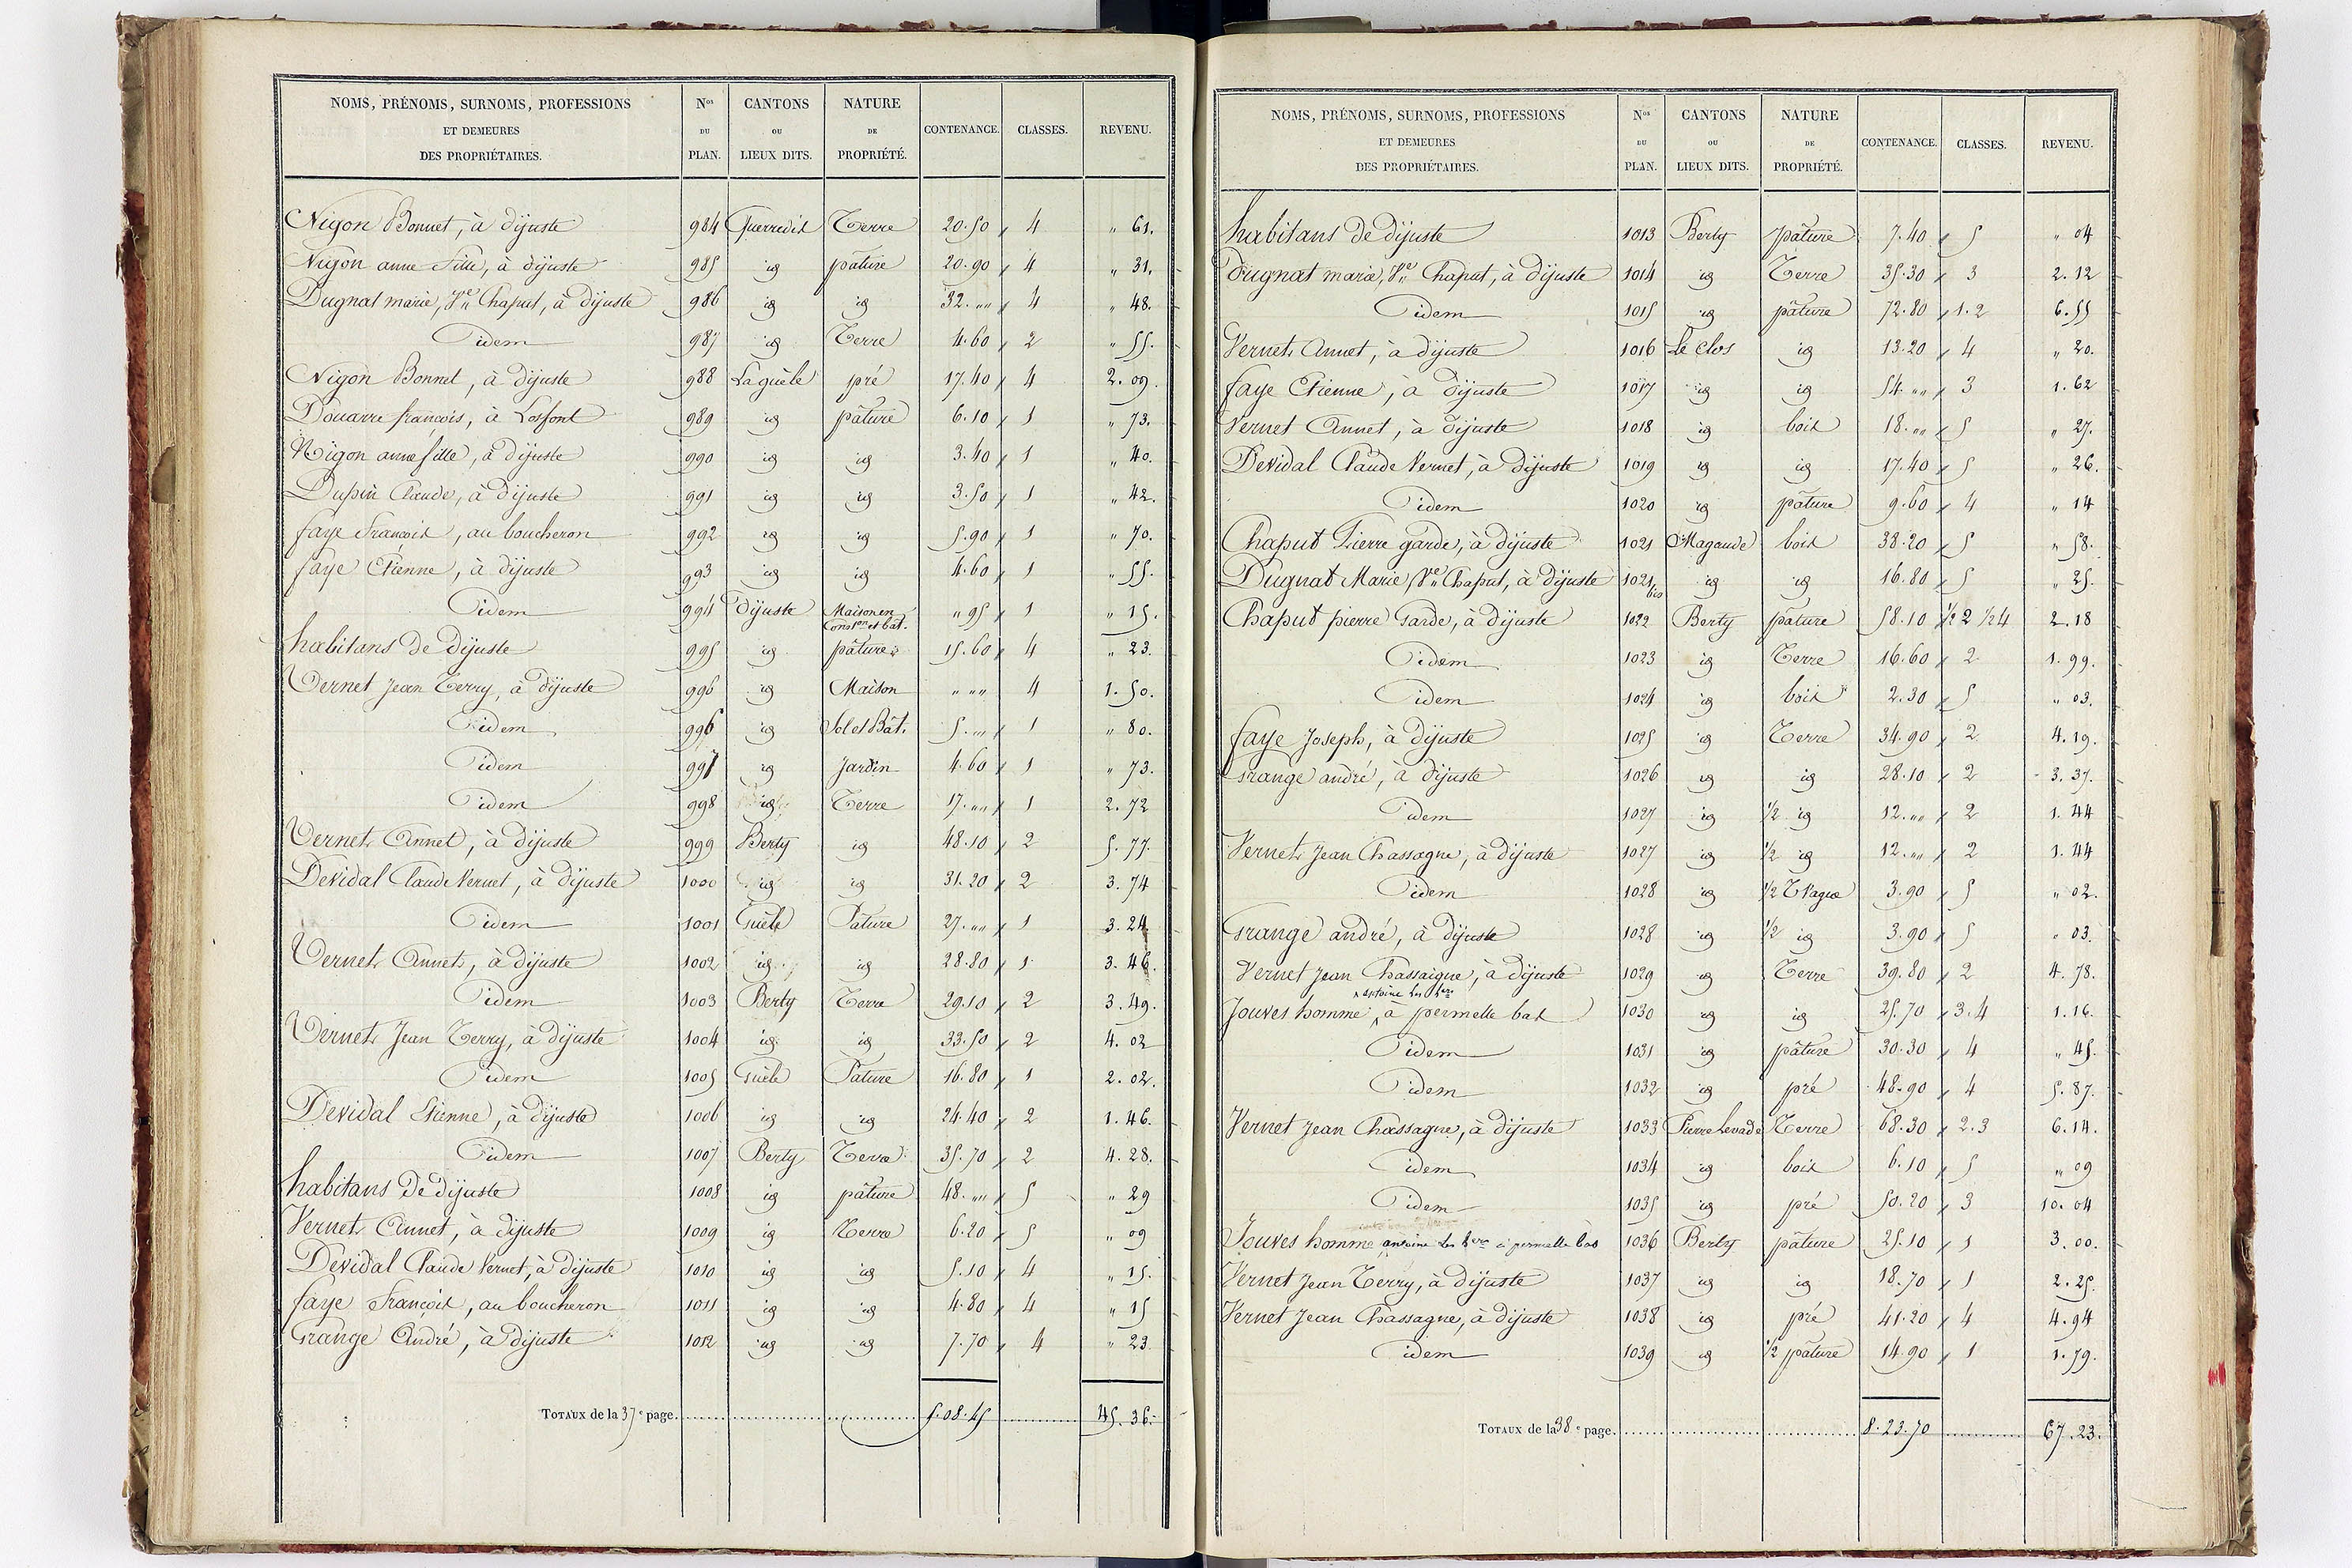 NOMS, PRÉNOMS, SURNOMS, PROFESSIONS ET DEMEURES DES PROPRIÉTAIRES. Nos DU PLAN. CANTONS OU LIEUX DITS. NATURE DE PROPRIÉTÉ. CONTENANCE. CLASSES. REVENU.
Nigon Bonnet, à dijuste 984 Terre 20.50 4 " 61.
Nigon anne fille, à dijuste 985 id pature 20.90 4 " 31.
Dugnat marie, Ve Chaput, à dijuste 986 id id 32. "" 4 " 48.
idem 987 id Terre 4.60 2 " 55.
Nigon Bonnet, à dijuste 988 La guèle pré 17.40 4 2.09.
Douarre françois, à Losfont 989 id pâture 6.10 1 " 73.
Nigon anne fille, à dijuste 990 id id 3.40 1 " 40.
Dupin Claude, à dijuste 991 id id 3.50 1 " 42.
faye françois, au boucheron 992 id id 5.90 1 " 70.
faye Etienne, à dijuste 993 id id 4.60 1 " 55.
idem 994 dijuste Maison en Conston et bat. " 95 1 " 15.
habitans de dijuste 995 id pâture 15.60 4 " 23.
Vernet Jean Terry, à dijuste 996 id Maison " "" 4 1.50.
idem 996 id Sol et Bât. 5. "" 1 " 80.
idem 997 id Jardin 4.60 1 " 73.
idem 998 id Terre 17. "" 1 2.72
Vernet Annet, à dijuste 999 Berty id 48.10 2 5.77.
Devidal Claude Vernet, à dijuste 1000 id id 31.20 2 3.74
idem 1001 Guèle Pature 27. "" 1 3.24.
Vernet Annet, à dijuste 1002 id id 28.80 1 3.46.
idem 1003 Berty Terre 29.10 2 3.49.
Vernet Jean Terry, à dijuste 1004 id id 33.50 2 4.02
idem 1005 Guèle Pature 16.80 1 2.02.
Devidal Etienne, à dijuste 1006 id id 24.40 2 1.46.
idem 1007 Berty Terre 35.70 2 4.28.
habitans de dijuste 1008 id pâture 48. "" 5 " 29
Vernet Annet, à dijuste 1009 id Terre 6.20 5 " 09
Devidal Claude Vernet, à dijuste 1010 id id 5.10 4 " 15.
faye françois, au boucheron 1011 id id 4.80 4 " 15
Grange André, à dijuste 1012 id id 7.70 4 " 23.
TOTAUX de la 37e page. 5.08.45 45.36.
NOMS, PRÉNOMS, SURNOMS, PROFESSIONS ET DEMEURES DES PROPRIÉTAIRES. Nos DU PLAN. CANTONS OU LIEUX DITS. NATURE DE PROPRIÉTÉ. CONTENANCE. CLASSES. REVENU.
habitans de dijuste 1013 Berty pâture 7.40 5 " 04
Dugnat marie, Ve Chaput, à dijuste 1014 id Terre 35.30 3 2.12
idem 1015 id pâture 72.80 1.2 6.55
Vernet Annet, à dijuste 1016 Le Clos id 13.20 4 " 20.
faye Etienne, à dijuste 1017 id id 54. "" 3 1.62
Vernet Annet, à dijuste 1018 id bois 18. "" 5 " 27.
Devidal Claude Vernet, à dijuste 1019 id id 17.40 5 " 26.
idem 1020 id pature 9.60 4 " 14
Chaput Pierre garde, à dijuste 1021 Magaude bois 38.20 5 " 58.
Dugnat Marie, Ve Chaput, à dijuste 1021 bis id id 16.80 5 " 25.
Chaput pierre Garde, à dijuste 1022 Berty pâture 58.10 1/2 2 1/2 4 2.18
idem 1023 id Terre 16.60 2 1.99.
idem 1024 id bois 2.30 5 " 03.
faye Joseph, à dijuste 1025 id Terre 34.90 2 4.19.
Grange andré, à dijuste 1026 id id 28.10 2 3.37.
idem 1027 id 1/2 id 12. "" 2 1.44
Vernet Jean Chassagne, à dijuste 1027 id 1/2 id 12. "" 2 1.44
idem 1028 id 1/2 T Vague 3.90 5 " 02.
Grange andré, à dijuste 1028 id 1/2 id 3.90 5 " 03.
Vernet Jean Chassaigne, à dijuste 1029 id Terre 39.80 2 4.78.
antoine les hers
Jouves homme, à permelle bas 1030 id id 25.70 3.4 1.16.
idem 1031 id pâture 30.30 4 " 45.
idem 1032 id pré 48.90 4 5.87.
Vernet Jean Chassagne, à dijuste 1033 Pierre Levade Terre 68.30 2.3 6.14.
idem 1034 id bois 6.10 5 " 09
idem 1035 id pré 50.20 3 10.04
Jouves homme antoine les hers à permelle bas 1036 Berty pâture 25.10 1 3.00.
Vernet Jean Terry, à dijuste 1037 id id 18.70 1 2.25.
Vernet Jean Chassagne, à dijuste 1038 id pré 41.20 4 4.94
idem 1039 id 1/2 pâture 14.90 1 1.79.
TOTAUX de la 38e page. 8.23.70 67.23.